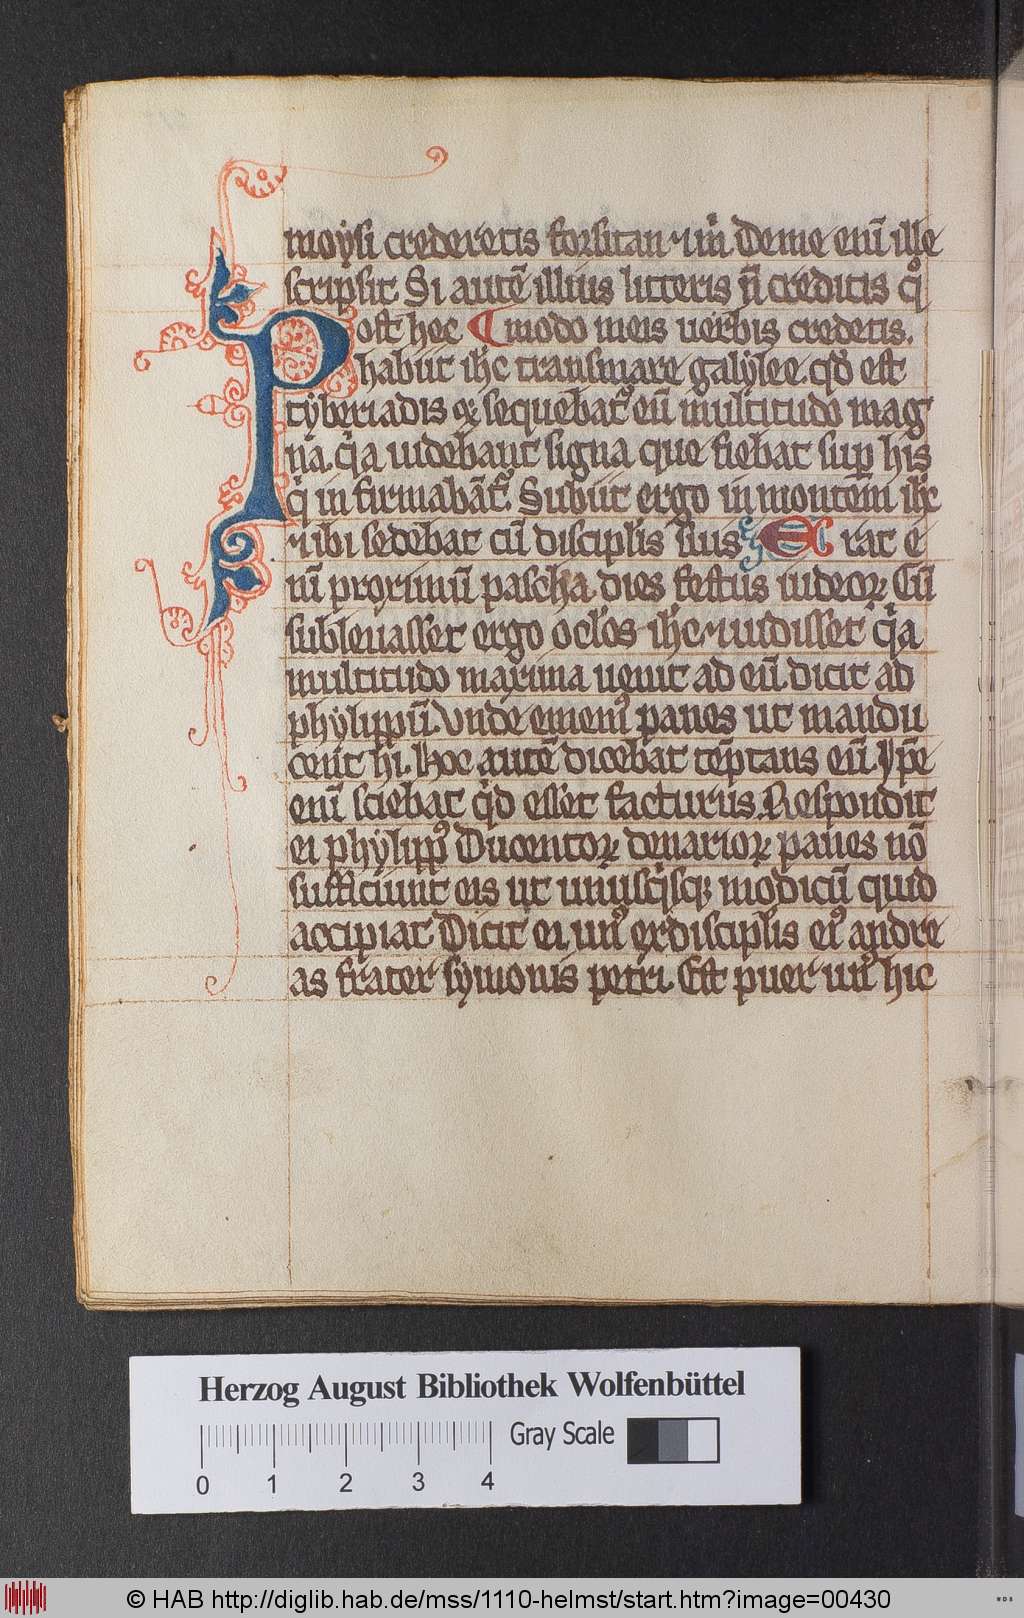 moysi crederetis forsitan ⁊ m̄. De me em̄ ille
scripsit. Si autē illius litteris n̄ creditis qͦ
Post hec modo meis uerbis credetis.
habiit ihc transmare galylee. qd̄ est
tyberiadis ⁊ sequebat᷑ eū multitudo mag
na. qͥa uidebant signa que fiebat sup his
qͥ infirmabāt᷑. Subiit ergo in montem ihc
⁊ ibi sedebat cū disciplis suis Erat e
nī proximū pascha dies festus iudeoꝝ. Cū
subleuasset ergo oclos ihc ⁊ uidisset qͥa
multitudo maxima uenit ad eū. dicit ad
phylippū. Vnde ememꝰ panes ut mandu
cent hi. Hoc autē dicebat tēptans eū. Ip̄e
enī sciebat qͥd esset facturus. Respondit
ei phylippꝰ Ducentoꝝ denarioꝝ panes nō
sufficiunt eis ut unusqͥsqꝫ modicū quid
accipiat. Dicit ei unꝰ ex disciplis eiꝰ andre
as frater symonis petri. Est puer unꝰ hic
Herzog August Bibliothek Wolfenbüttel
Gray Scale
0 1 2 3 4
© HAB http://diglib.hab.de/mss/1110-helmst/start.htm?image=00430